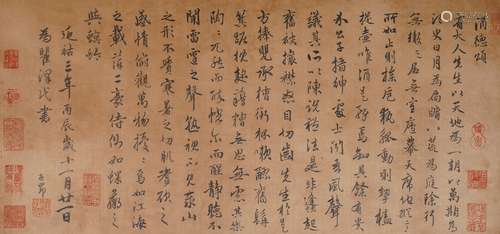 酒德頌
有大人先生以天地為一朝以萬期為
須臾日月為扃牖八荒為庭除行
無轍跡居無室廬幕天席地縱意
所如止則操卮執觚動則挈榼
提壺唯酒是務焉知其餘有貴
介公子搢紳處士聞吾風聲
議其所以陳說禮法是非鋒起
奮袂攘襟怒目切齒先生於是
方捧罌承槽銜杯漱醪奮髯
箕踞枕麴藉糟無思無慮其樂
陶陶兀然而醉恍爾而醒靜聽不
聞雷霆之聲熟視不見泰山
之形不覺寒暑之切肌嗜欲之
感情俯觀萬物擾擾焉如江海
之載浮萍二豪侍側焉如蜾蠃之
與螟蛉
延祐三年丙辰歲十一月廿一日
為瞿澤民書